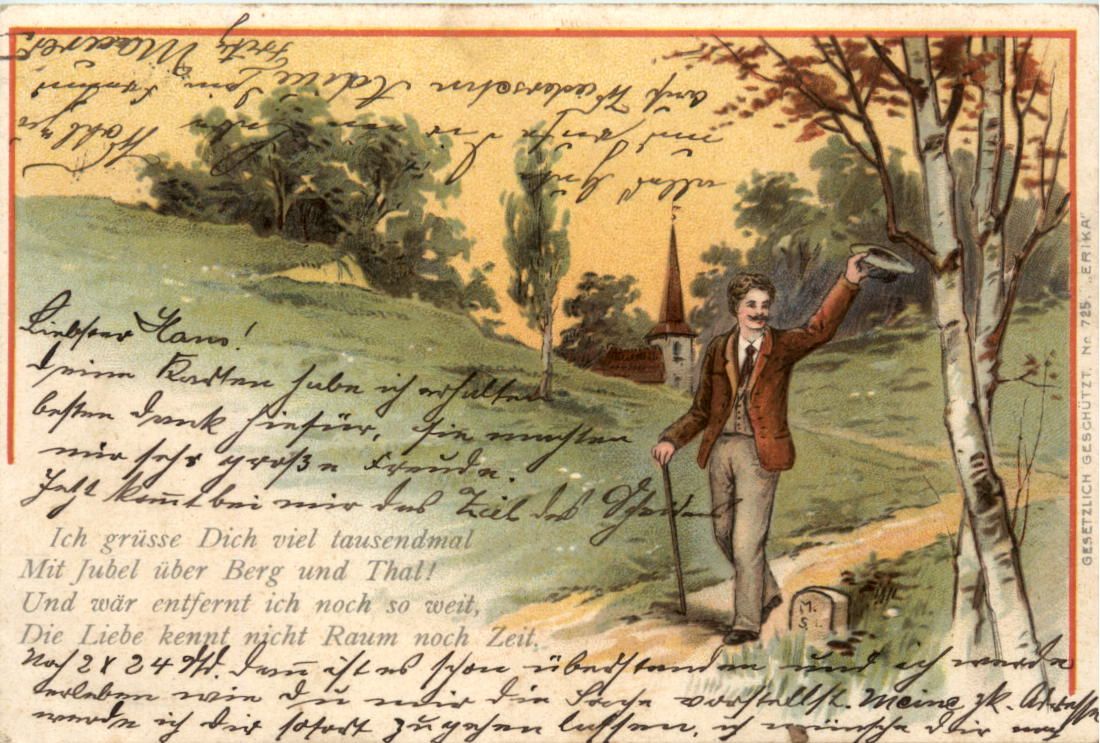 Liebster Hans!
deine Karten habe ich erhalten
besten Dank hiefür, sie machten
mir sehr große Freude.
Jetzt komt bei mir das Ziel des Scheidens
Ich grüsse Dich viel tausendmal
Mit Jubel über Berg und Thal!
Und wär entfernt ich noch so weit,
Die Liebe kennt nicht Raum noch Zeit.
Noch 2 x 24 Std. dann ist es schon überstanden und ich werde
erleben wie du mir die Sache vorstellst. Meine zk. Adresse
werde ich dir sofort zugehen lassen, ich wünsche dir noch
alles Gute
und
auf Wiedersehn Adieu
Fritz
M.
S.
GESETZLICH GESCHÜTZT. No 725. „ERIKA"